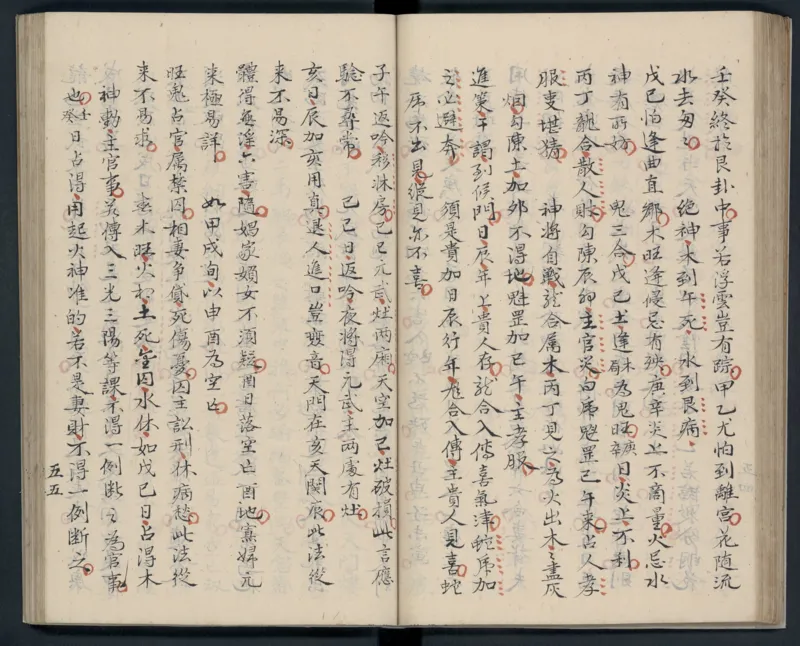 壬癸終於艮卦中事若浮雲豈有踪甲乙尤怕到離宮花隨流
水去匆々　絶神木到午死水到艮病
戊己怕逢曲直鄉木旺逢侵忌有殃庚辛炎上不商量火忌水
神有所妨　鬼三合戊己土逢木為鬼旺庚辛日炎上不利
丙丁龍合散人財勾陳辰卯主官災白虎魁罡己午來占人孝
服更堪猜　神將自戰龍合属木丙丁見之為火出木々盡灰
烟勾陳土加卯不得地魁罡加巳午主孝服
進策干謁到候門日辰年上貴人存龍合入傳喜氣津蛇虎加
之必避奔　須是貴加日辰行年龍合入傳主貴人見喜蛇
虎不出見縱見亦不喜
子午返吟移淋房己巳元武灶兩廂天空加己灶破損此言應
驗不尋常　己巳日返吟夜將得元武主兩處有灶
亥日辰加亥用真退人進口豈變音天門在亥天関辰此法從
來不易深
體得無淫六害隨娼家嫺女不須疑酉日落空亡酉地寡婦元
來極易詳　如甲戌旬以申酉為空亡
旺鬼占官属繫囚相妻爭貸死傷憂囚主訟刑休病愁此法從
來不易求　春木旺火相土死金囚水休如戊己日占得木
神動主官事若傳入三光三陽等課不得一例断之為官事
也壬癸日占得用起火神准的若不是妻財不得一例断之
五五